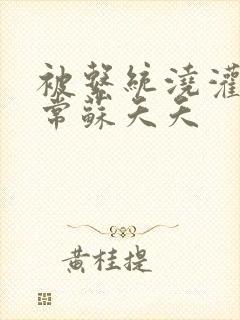 被繫統澆灌
常蘇夭夭
黃桂提